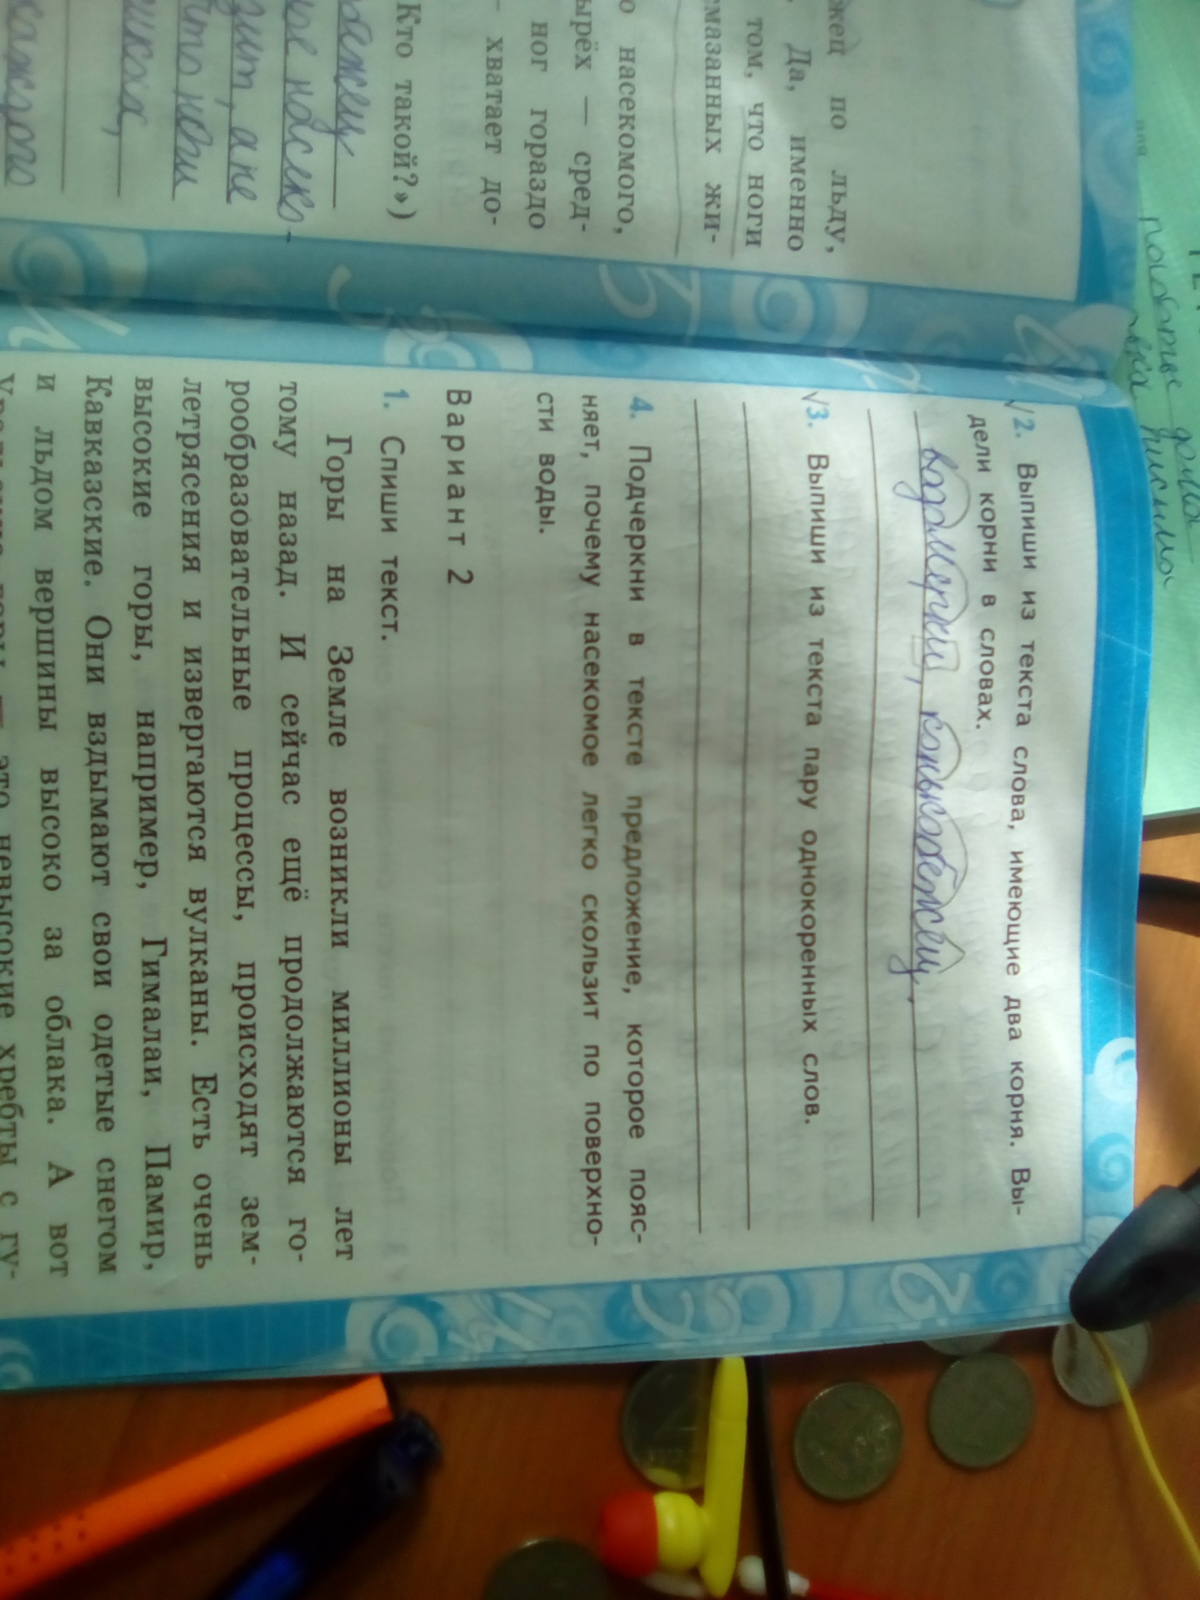 жец по льду,
Да, именно
том, что ноги
смазанных жи-
о насекомого,
ырёх — сред-
ног гораздо
– хватает до-
Кто такой?»)
√2. Выпиши из текста слова, имеющие два корня. Вы-
дели корни в словах.
водомерки, конькобежец.
√3. Выпиши из текста пару однокоренных слов.
4. Подчеркни в тексте предложение, которое пояс-
няет, почему насекомое легко скользит по поверхно-
сти воды.
Вариант 2
1. Спиши текст.
Горы на Земле возникли миллионы лет
тому назад. И сейчас ещё продолжаются го-
рообразовательные процессы, происходят зем-
летрясения и извергаются вулканы. Есть очень
высокие горы, например, Гималаи, Памир,
Кавказские. Они вздымают свои одетые снегом
и льдом вершины высоко за облака. А вот
это невысокие хребты с гу-